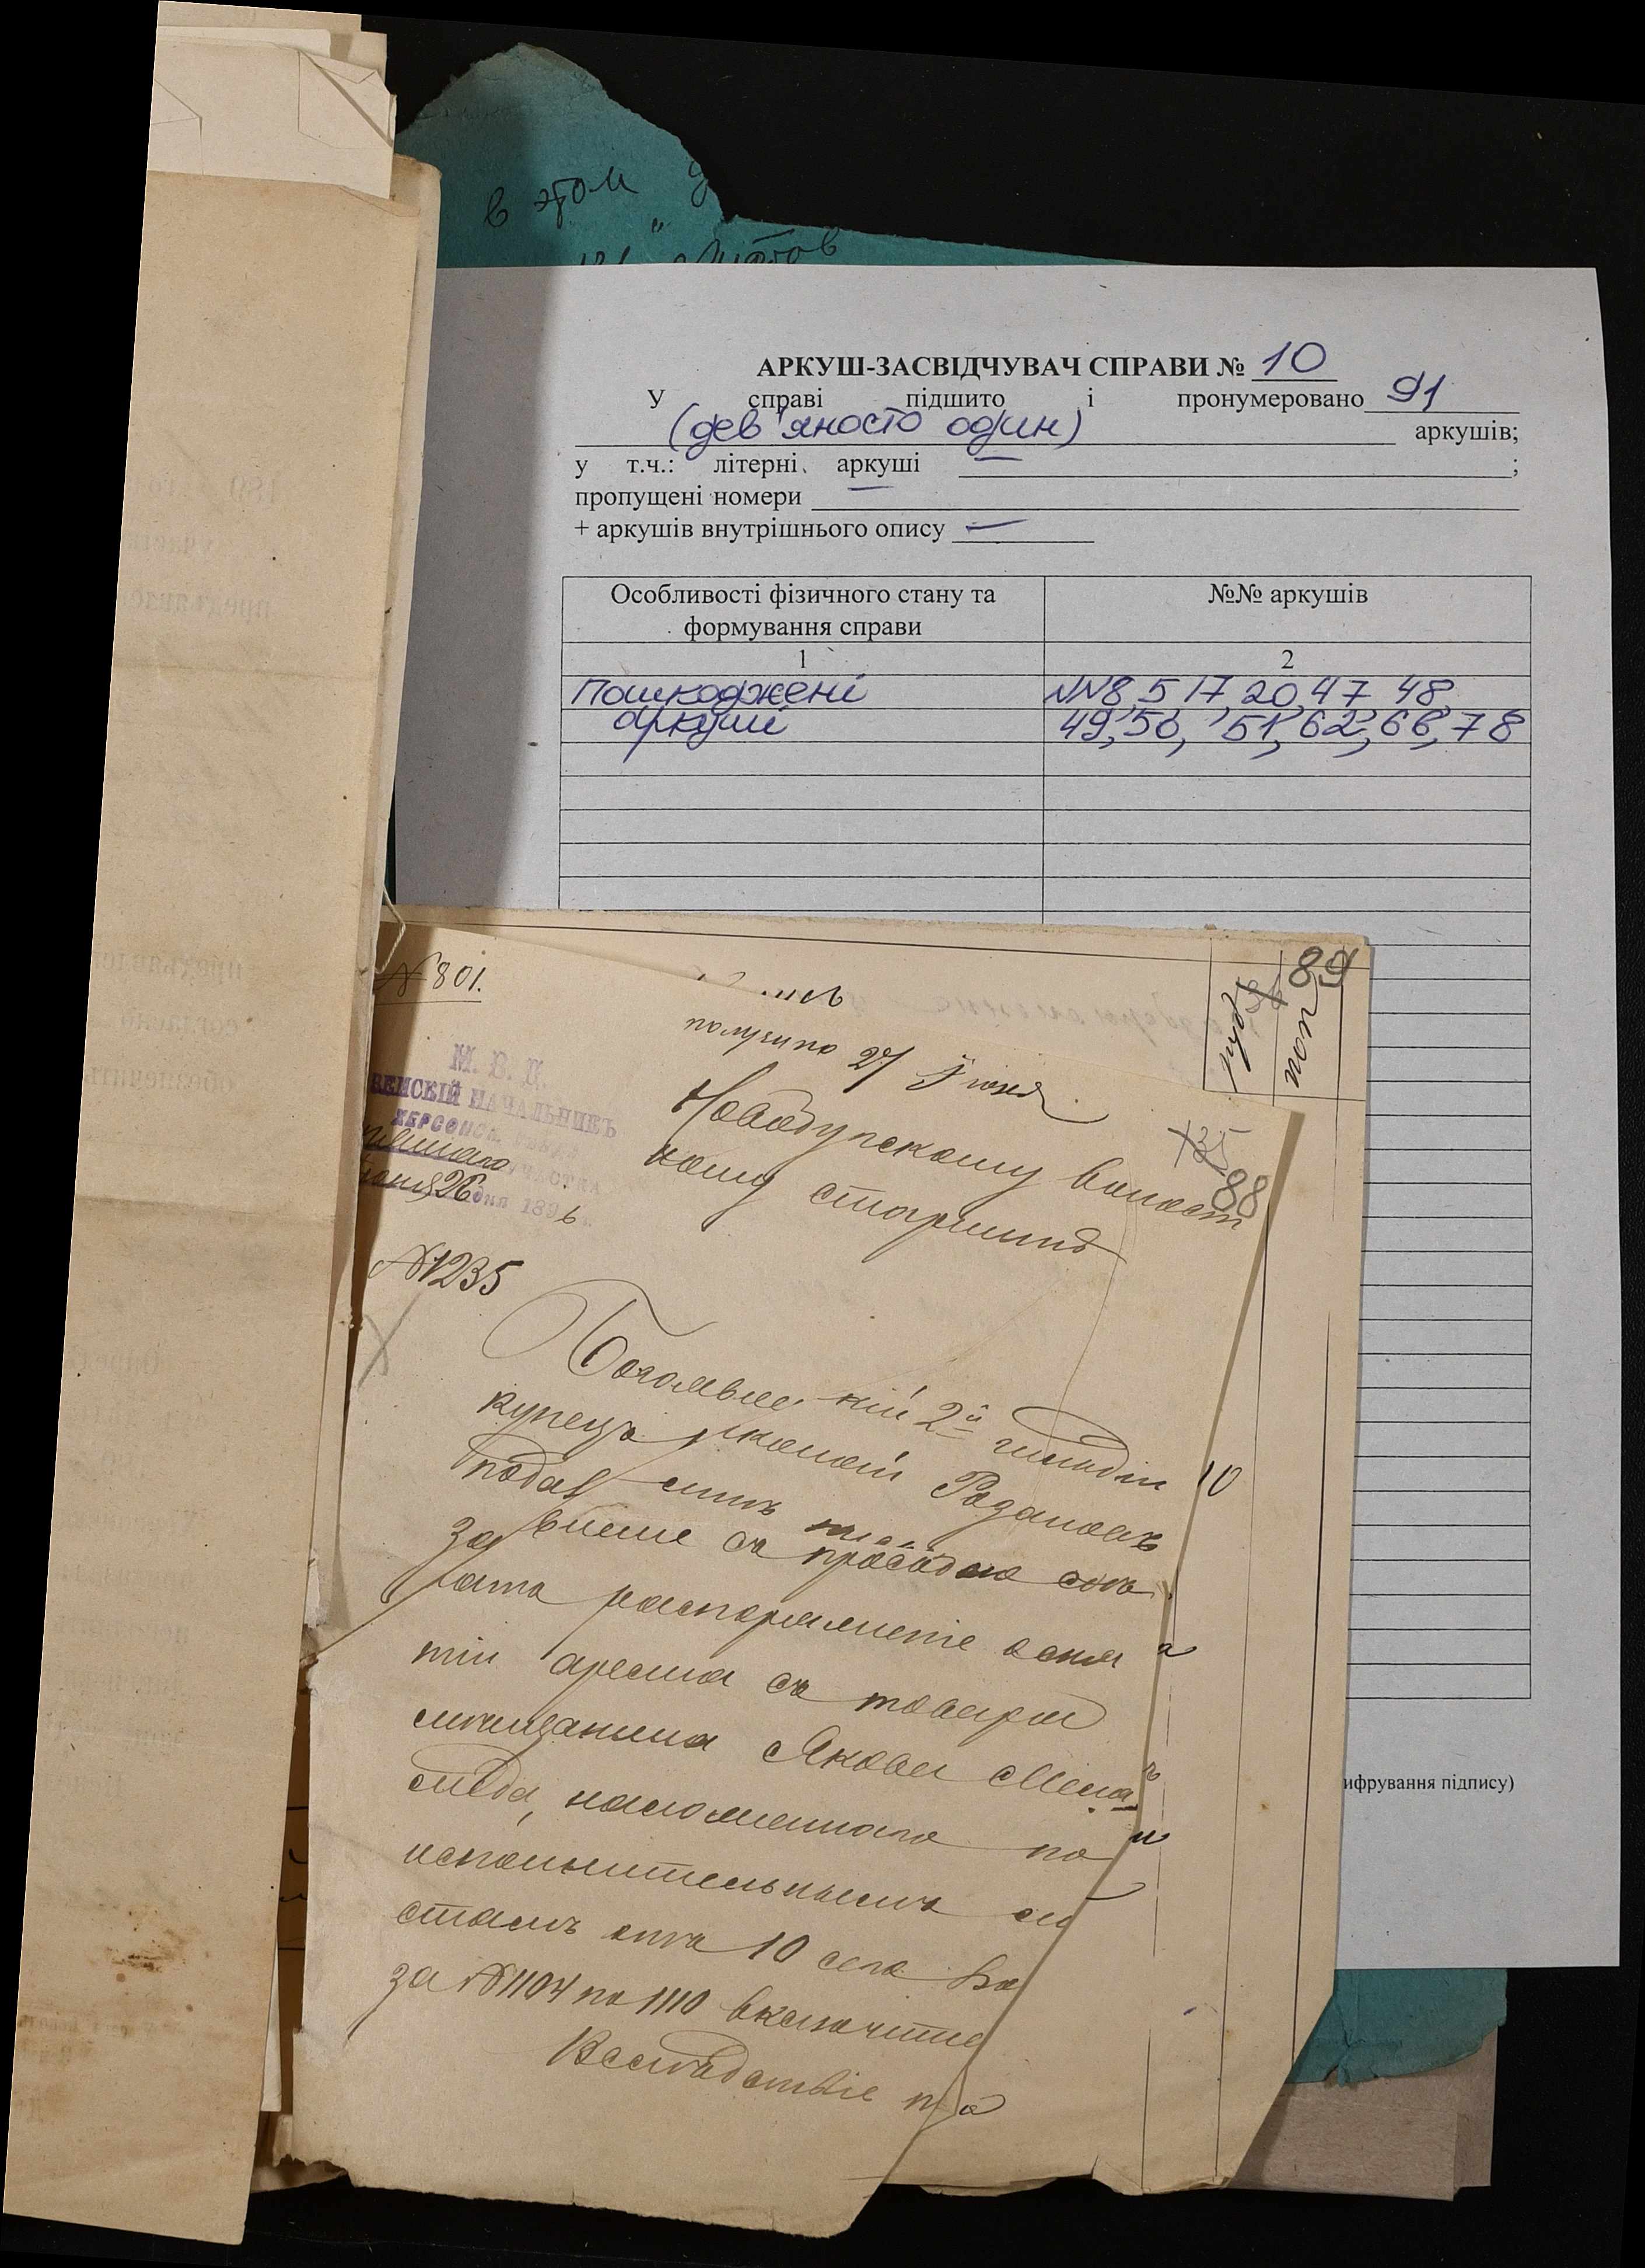 в этом
листов
АРКУШ-ЗАСВІДЧУВАЧ СПРАВИ № 10
У справі підшито і пронумеровано 91
(дев'яносто один) аркушів;
у т.ч.: літерні аркуші — ;
пропущені номери —
+ аркушів внутрішнього опису —
Особливості фізичного стану та формування справи
№№ аркушів
1
2
пошкоджені
№№8, 5, 17, 20, 47, 48,
аркуші
49, 50, 51, 62, 66, 78
ифрування підпису)
89
руб
коп
№801.
получено 27 Іюня
М. В. Д.
ЗЕМСКІЙ НАЧАЛЬНИКЪ
ХЕРСОНСК.
УЧАСТКА
26 дня 1896
88
Новобугскому волост
ному старшинѣ
№1235
2й гильдіи
10
купецъ Розановъ
подалъ мнѣ
заявленіе съ просьбою
распоряженіе о сня
тіи ареста съ товара
мѣщанина Якова
наложеннаго по
исполнительнымъ ли
стамъ отъ 10 сего
за №1104 по 1110 включите
Вслѣдствіе